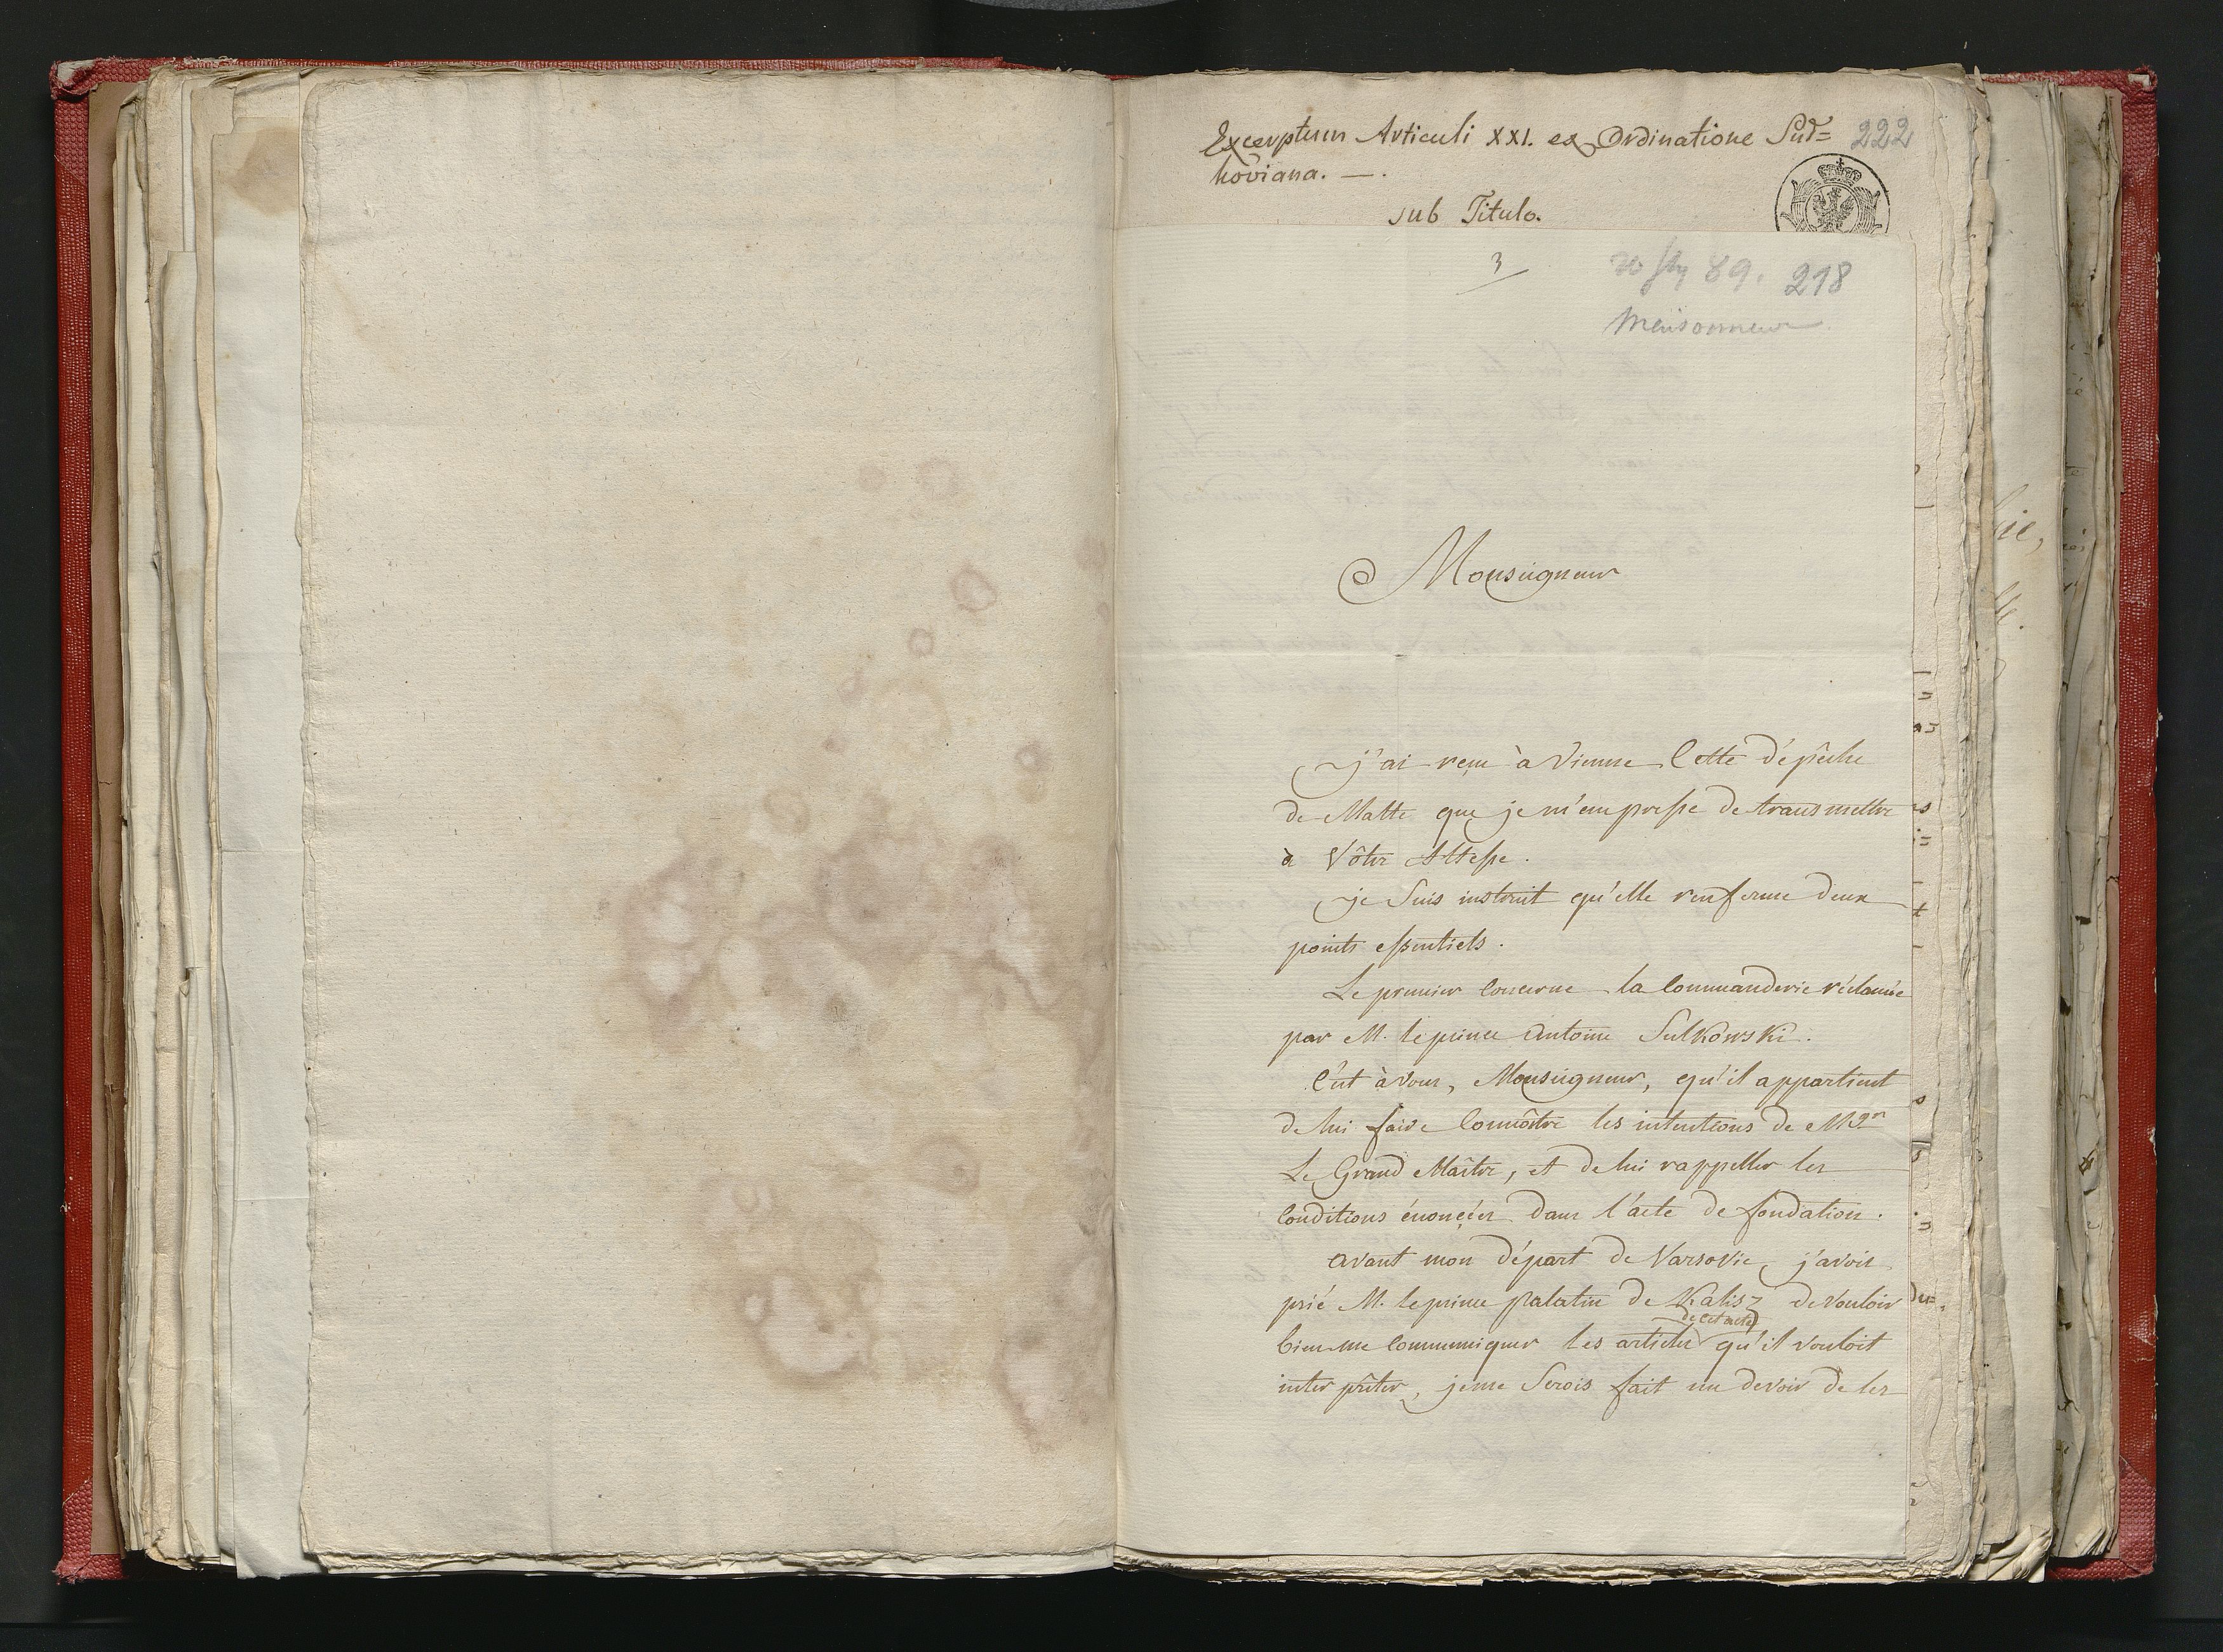 Excerptum Articuli XXI. ex Ordinatione Sud= 222
hoviana. —.
sub Titulo.
3 89. 218
Meisonneur
Monseigneur
j'ai reçu à Vienne Cette dépêche
de Malte que je m'empresse de transmettre
à Vôtre Altesse.
je Suis instruit qu'elle renferme deux
points essentiels.
Le premier Concerne la Commanderie réclamée
par M. le prince Antoine Sulkowski.
C'est à vous, Monseigneur, qu'il appartient
de lui faire Connoître les intentions de Mgr
Le Grand Maître, et de lui rappeller les
Conditions énoncées dans l'acte de fondation.
avant mon départ de Varsovie, j'avois
prié M. le prince palatin de Kalisz de vouloir
de cet acte
bien me Communiquer les articles qu'il vouloit
interpréter, je me Serois fait un devoir de les